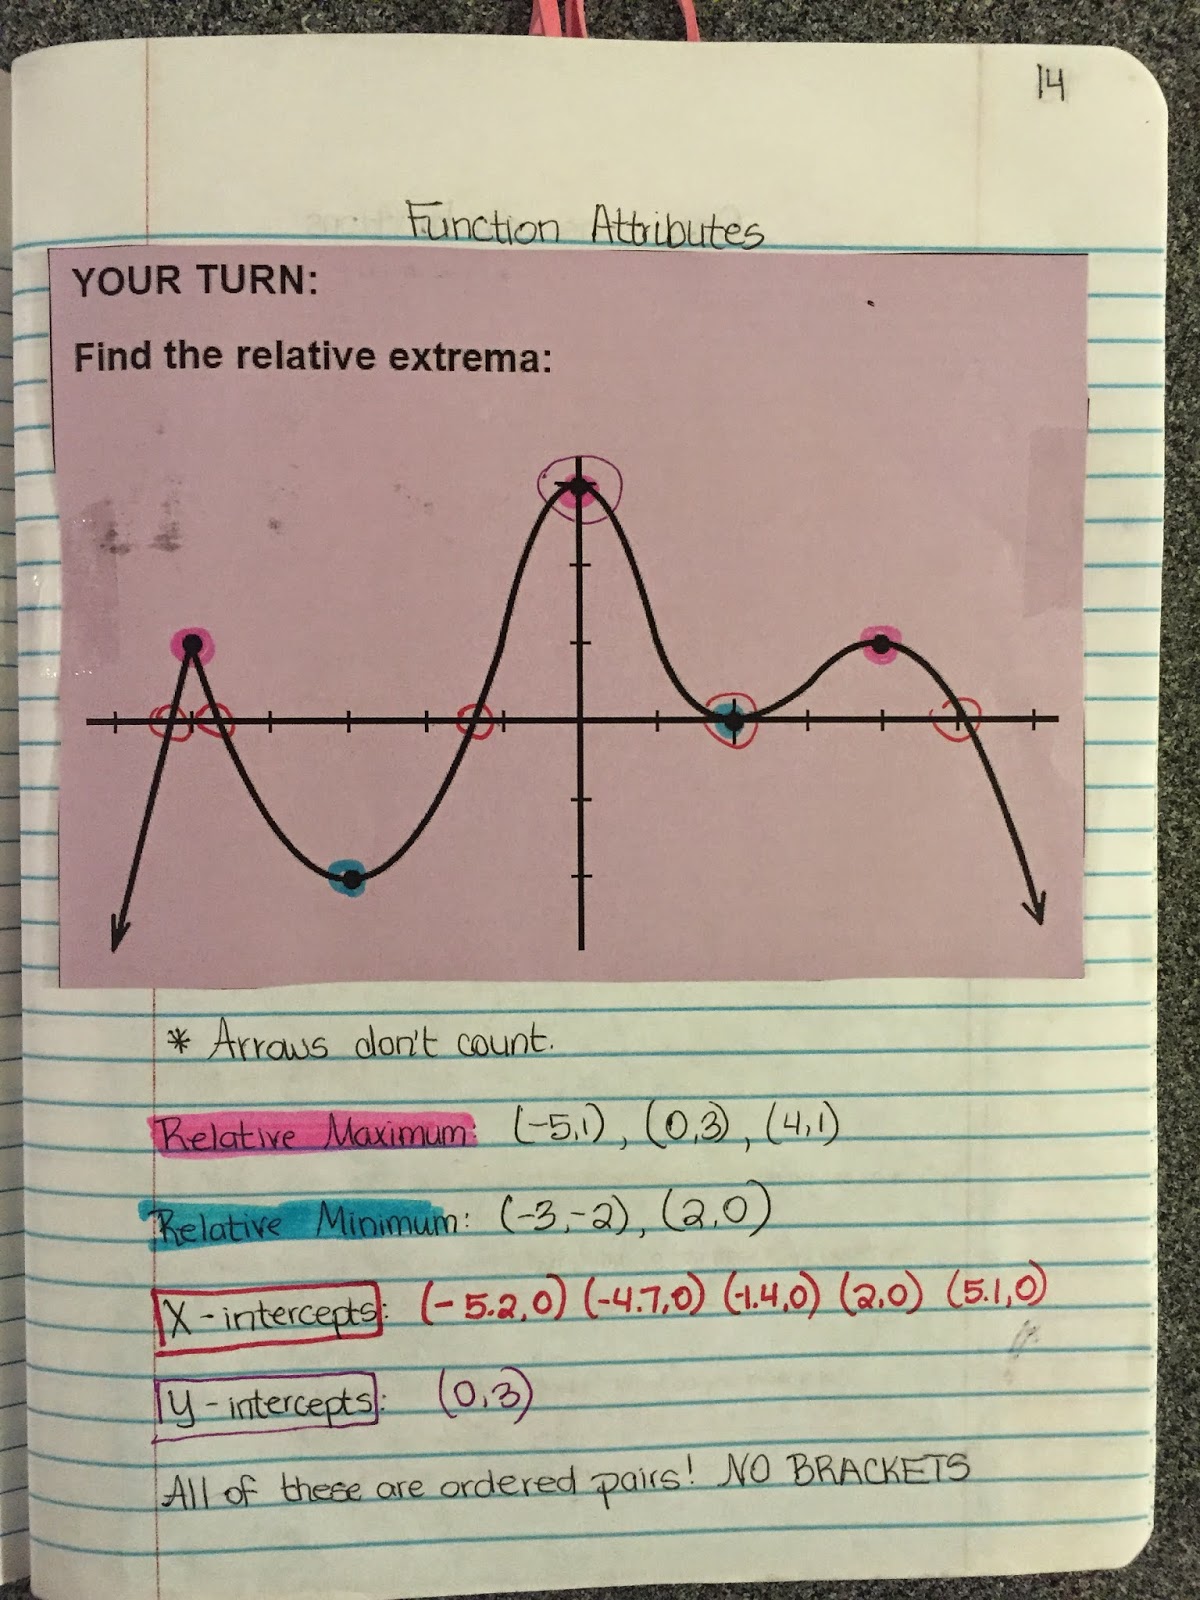 14
Function Attributes
YOUR TURN:
Find the relative extrema:
* Arrows don't count.
Relative Maximum: (-5,1), (0,3), (4,1)
Relative Minimum: (-3,-2), (2,0)
X-intercepts: (-5.2,0) (-4.7,0) (-1.4,0) (2,0) (5.1,0)
Y-intercepts: (0,3)
All of these are ordered pairs! NO BRACKETS